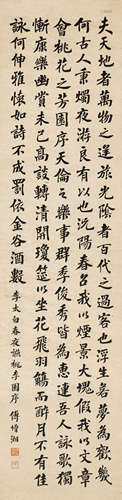 夫天地者萬物之逆旅光陰者百代之過客也浮生若夢為歡幾
何古人秉燭夜游良有以也況陽春召我以煙景大塊假我以文章
會桃花之芳園序天倫之樂事羣季俊秀皆為惠連吾人詠歌獨
慚康樂幽賞未已高談轉清開瓊筵以坐花飛羽觴而醉月不有佳
詠何伸雅懷如詩不成罰依金谷酒數 李太白春夜讌桃李園序 傅增湘